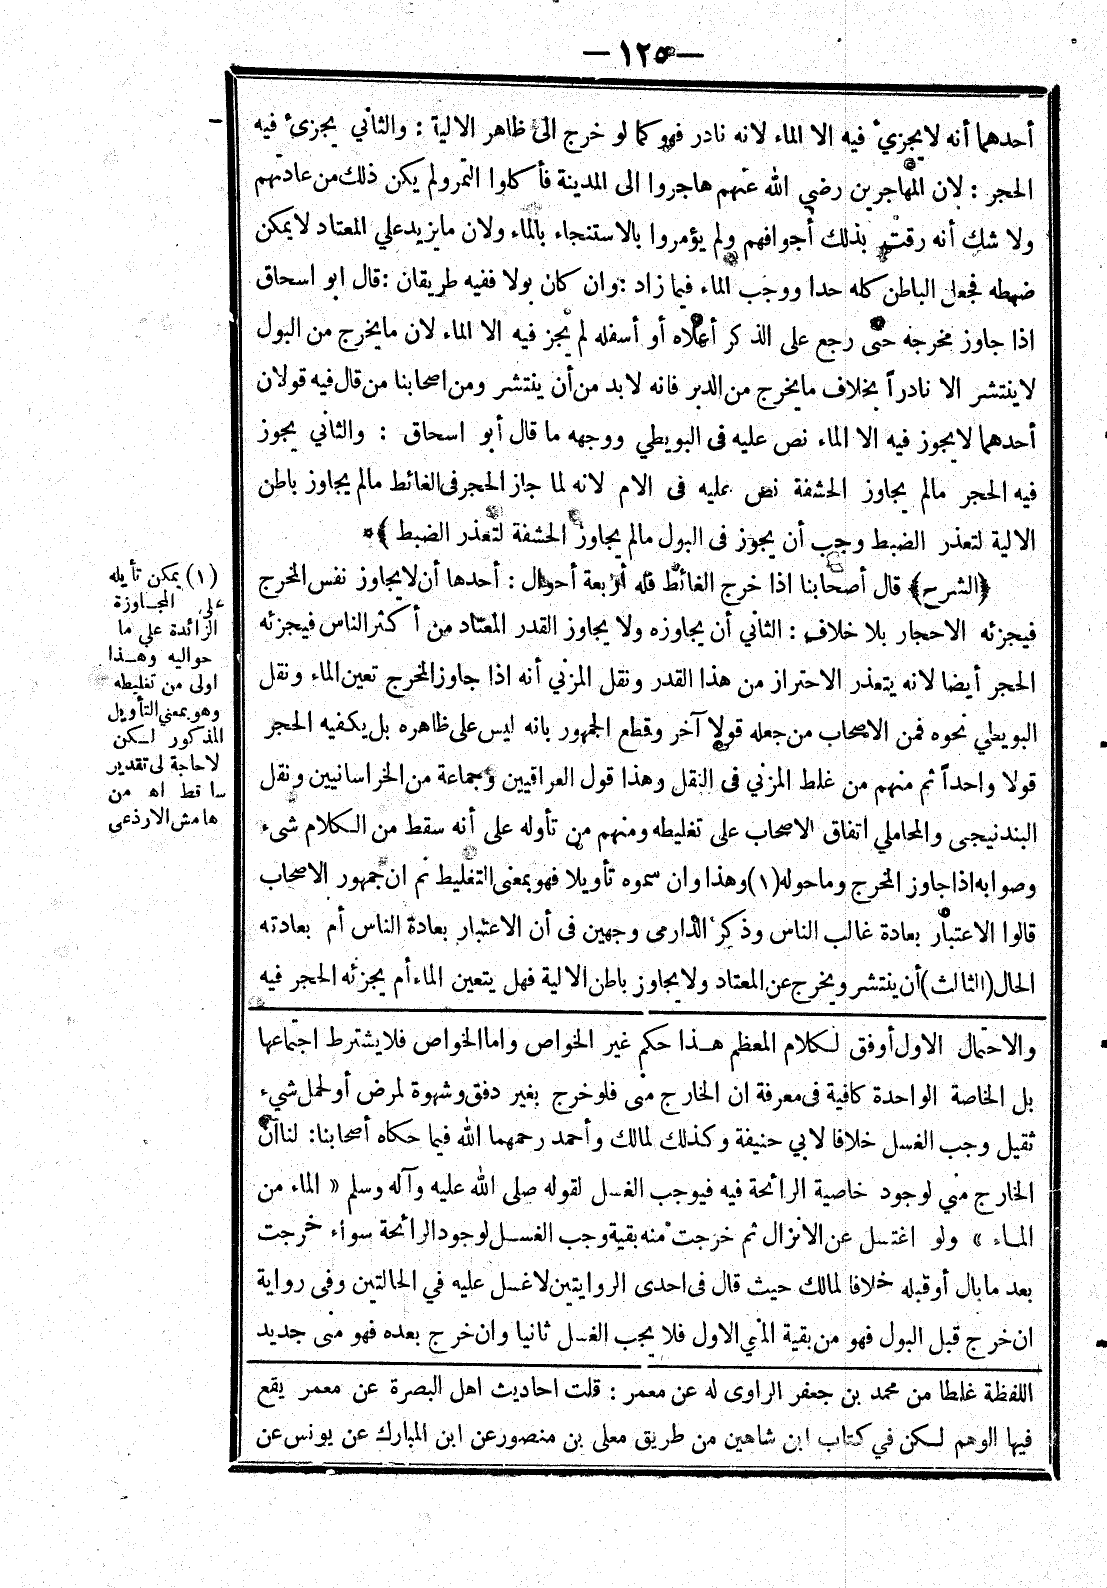 — ١٢٥ —
أحدهما أنه لا يجزيء فيه الا الماء لانه نادر فهو كما لو خرج الى ظاهر الالية : والثاني يجزىء فيه
الحجر : لان المهاجرين رضي الله عنهم هاجروا الى المدينة فأكلوا التمر ولم يكن ذلك من عادتهم
ولا شك أنه رقت بذلك أجوافهم ولم يؤمروا بالاستنجاء بالماء ولان ما يزيد علي المعتاد لا يمكن
ضبطه فجعل الباطن كله حدا ووجب الماء فيما زاد : وان كان بولا ففيه طريقان : قال ابو اسحاق
اذا جاوز مخرجه حتى رجع على الذكر أعلاه أو أسفله لم يجز فيه الا الماء لان ما يخرج من البول
لا ينتشر الا نادراً بخلاف ما يخرج من الدبر فانه لا بد من أن ينتشر ومن اصحابنا من قال فيه قولان
أحدهما لا يجوز فيه الا الماء نص عليه فى البويطي ووجهه ما قال أبو اسحاق : والثاني يجوز
فيه الحجر مالم يجاوز الحشفة نص عليه فى الام لانه لما جاز الحجر فى الغائط مالم يجاوز باطن
الالية لتعذر الضبط وجب أن يجوز فى البول مالم يجاوز الحشفة لتعذر الضبط ﴾*
﴿الشرح﴾ قال أصحابنا اذا خرج الغائط فله أربعة أحوال : أحدها أن لا يجاوز نفس المخرج
فيجزئه الاحجار بلا خلاف : الثاني أن يجاوزه ولا يجاوز القدر المعتاد من أكثر الناس فيجزئه
الحجر أيضا لانه يتعذر الاحتراز من هذا القدر ونقل المزني أنه اذا جاوز المخرج تعين الماء ونقل
البويطي نحوه فمن الاصحاب من جعله قولا آخر وقطع الجمهور بانه ليس على ظاهره بل يكفيه الحجر
قولا واحداً ثم منهم من غلط المزني فى النقل وهذا قول العراقيين وجماعة من الخراسانيين ونقل
البندنيجى والمحاملي اتفاق الاصحاب على تغليطه ومنهم من تأوله على أنه سقط من الكلام شىء
وصوابه اذا جاوز المخرج وما حوله (١) وهذا وان سموه تأويلا فهو بمعنى التغليط ثم ان جمهور الاصحاب
قالوا الاعتبار بعادة غالب الناس وذكر الدارمى وجهين فى أن الاعتبار بعادة الناس أم بعادته
الحال (الثالث) أن ينتشر ويخرج عن المعتاد ولا يجاوز باطن الالية فهل يتعين الماء أم يجزئه الحجر فيه
(١) يمكن تأويله
على المجاوزة
الزائدة على ما
حواليه وهذا
اولى من تغليطه
وهو بمعني التأويل
المذكور لكن
لا حاجة لى تقدير
ساقط اه من
هامش الاذرعى
والاحتمال الاول أوفق لكلام المعظم هذا حكم غير الخواص واما الخواص فلا يشترط اجتماعها
بل الخاصة الواحدة كافية فى معرفة ان الخارج منى فلو خرج بغير دفق وشهوة لمرض أو لحمل شيء
ثقيل وجب الغسل خلافا لابي حنيفة وكذلك لمالك وأحمد رحمهما الله فيما حكاه أصحابنا : لنا أن
الخارج مني لوجود خاصية الرائحة فيه فيوجب الغسل لقوله صلى الله عليه وآله وسلم « الماء من
الماء » ولو اغتسل عن الانزال ثم خرجت منه بقية وجب الغسل لوجود الرائحة سواء خرجت
بعد ما بال أو قبله خلافا لمالك حيث قال فى احدى الروايتين لا غسل عليه في الحالتين وفى رواية
ان خرج قبل البول فهو من بقية المني الاول فلا يجب الغسل ثانيا وان خرج بعده فهو منى جديد
اللفظة غلطا من محمد بن جعفر الراوى له عن معمر : قلت احاديث اهل البصرة عن معمر يقع
فيها الوهم لكن في كتاب ابن شاهين من طريق معلى بن منصور عن ابن المبارك عن يونس عن